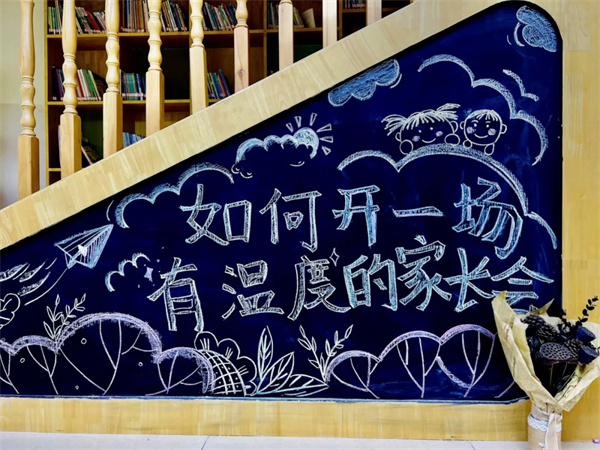 如何开一场
有温度的家长会